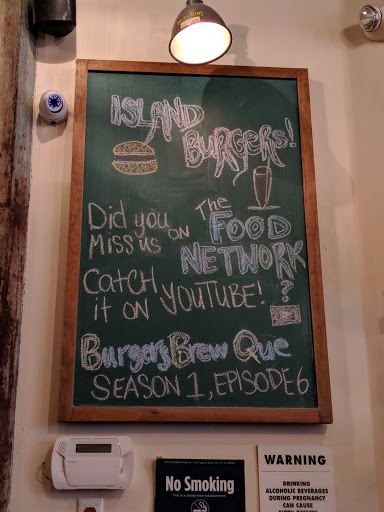 ISLAND
BURGERS!
Did you
MISS US ON
THE
FOOD
NETWORK
?
CATCH
it ON YOUTUBE!
Burgers Brew Que
SEASON 1, EPISODE 6
No Smoking
This is a smoke-free establishment.
WARNING
DRINKING
ALCOHOLIC BEVERAGES
DURING PREGNANCY
CAN CAUSE